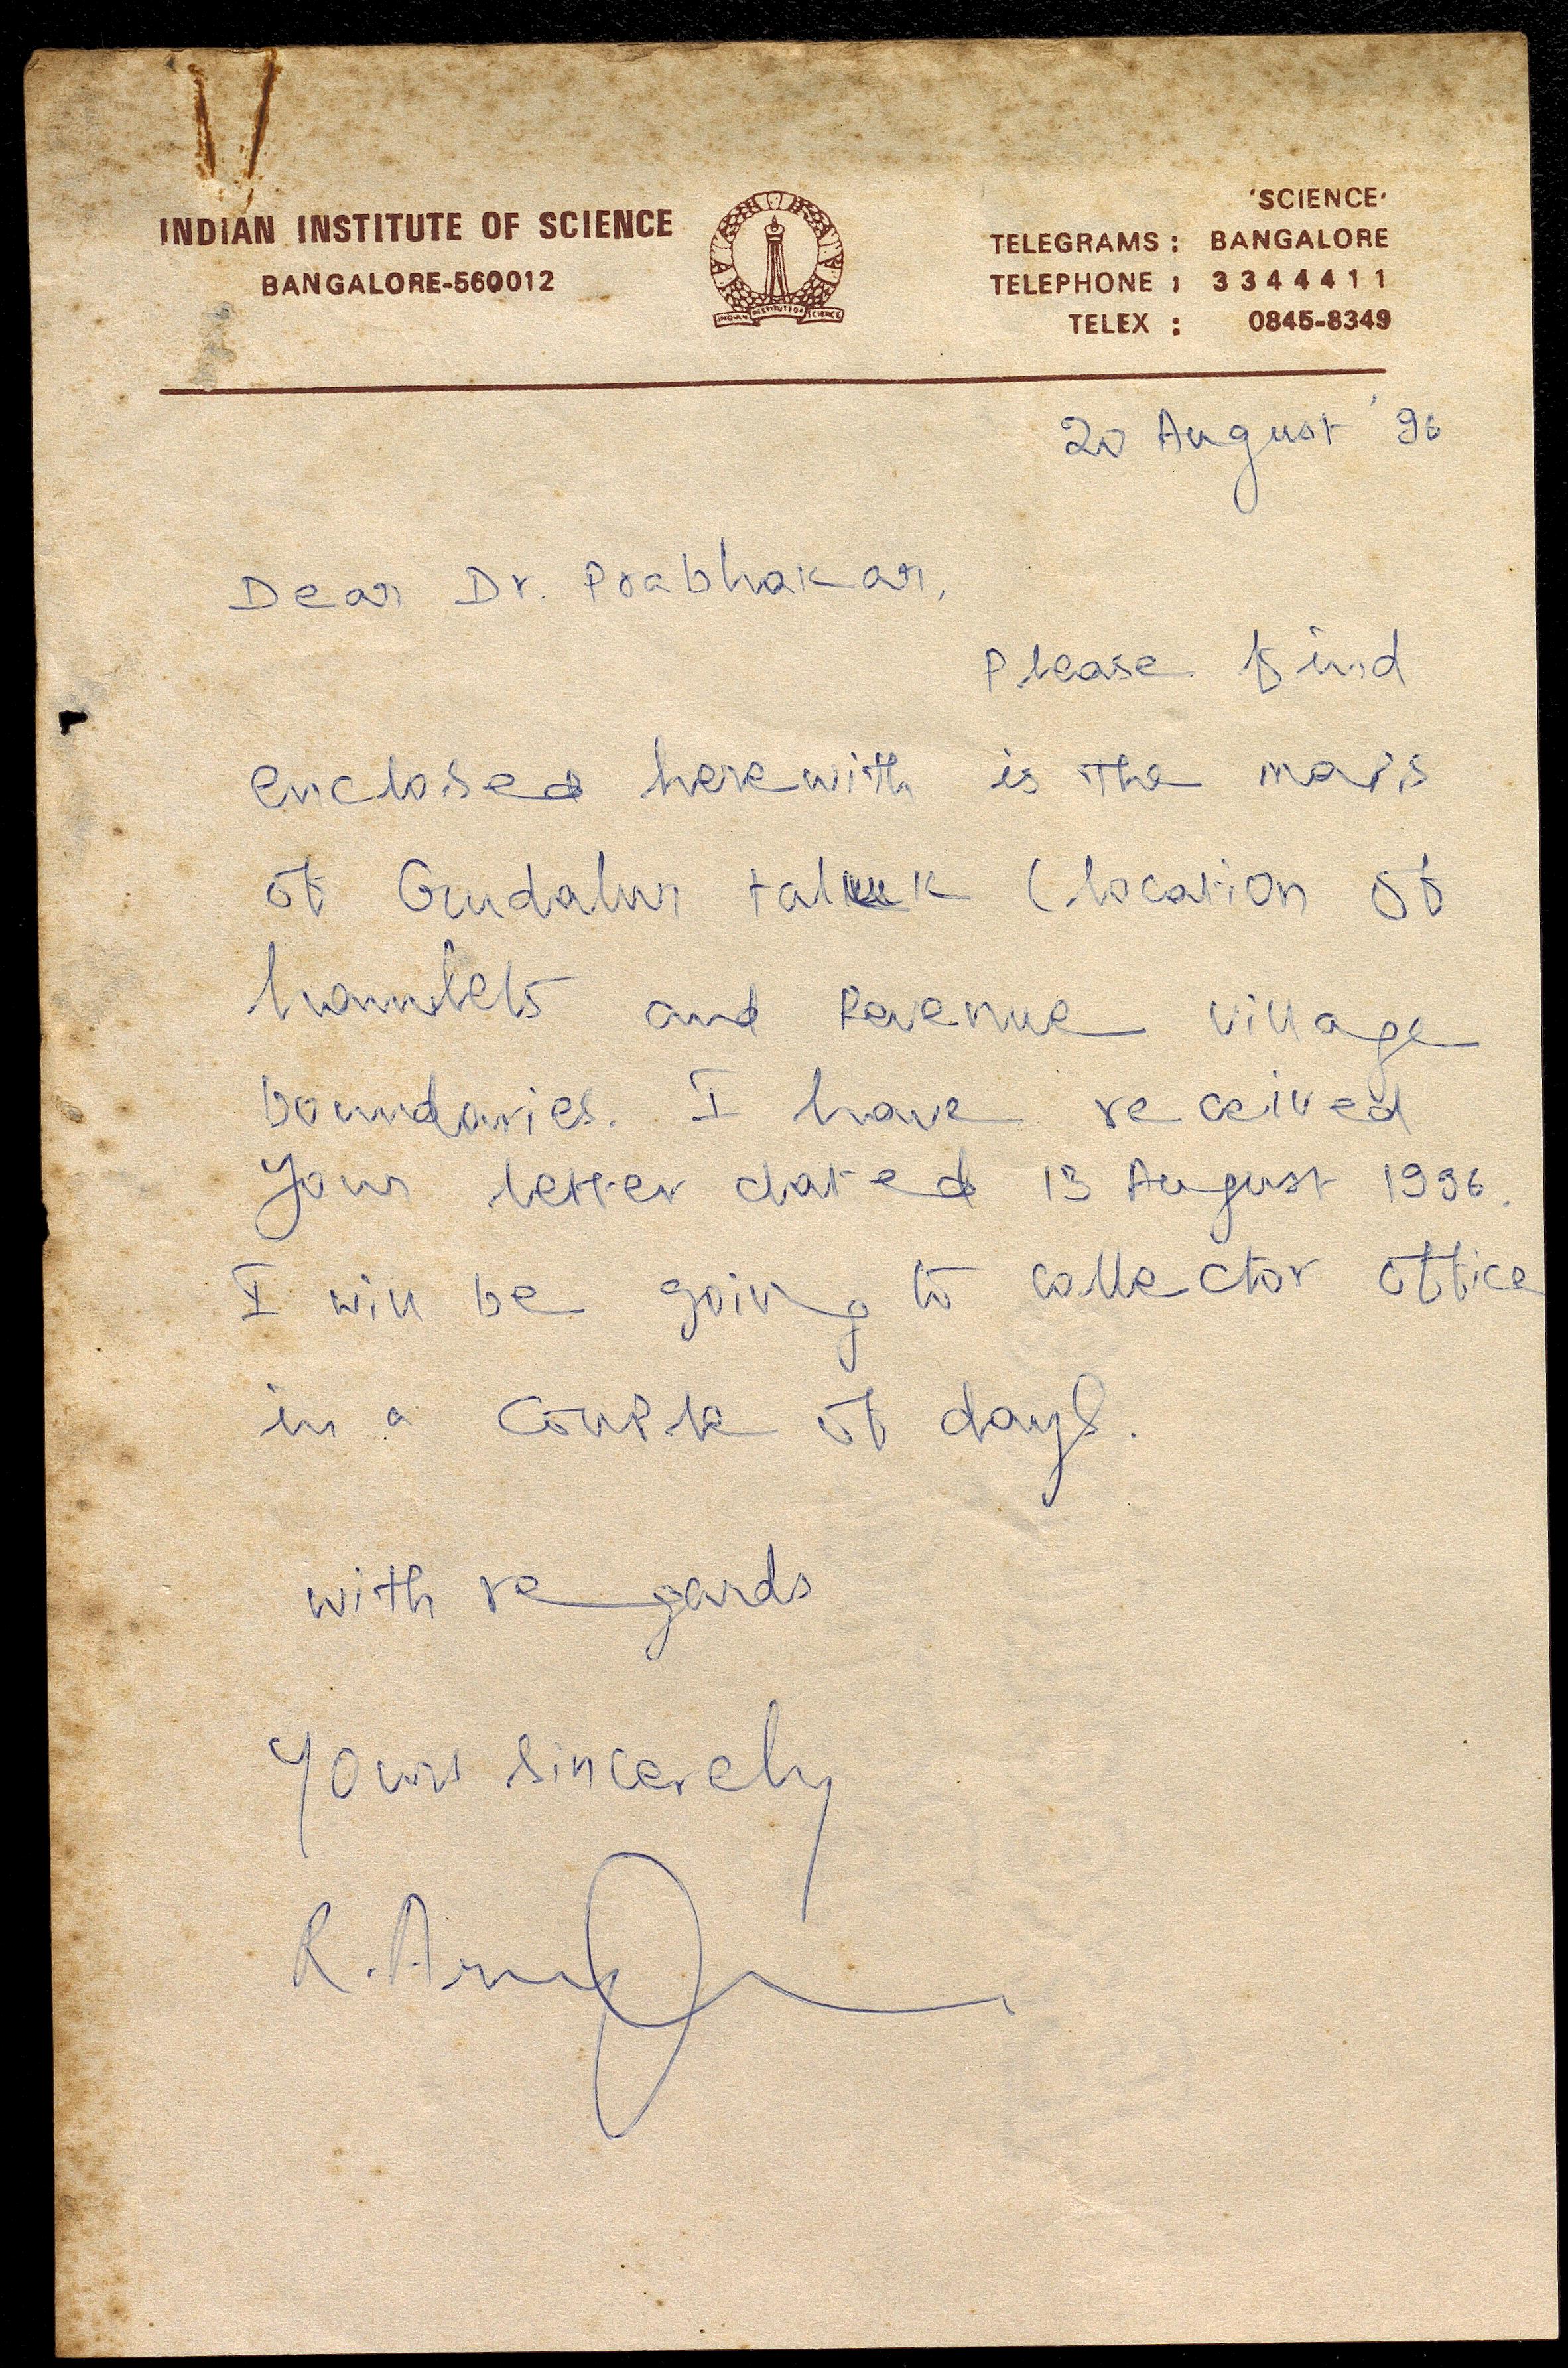 INDIAN INSTITUTE OF SCIENCE
BANGALORE-560012
INDIAN INSTITUTE OF SCIENCE
'SCIENCE'
TELEGRAMS : BANGALORE
TELEPHONE : 3344411
TELEX : 0845-8349
20 August '96
Dear Dr. Prabhakar,
Please find
enclosed herewith is the maps
of Gudalur taluk (location of
hamlets and Revenue village
boundaries. I have received
Your letter dated 13 August 1996.
I will be going to collector office
in a couple of days.
with regards
Yours sincerely